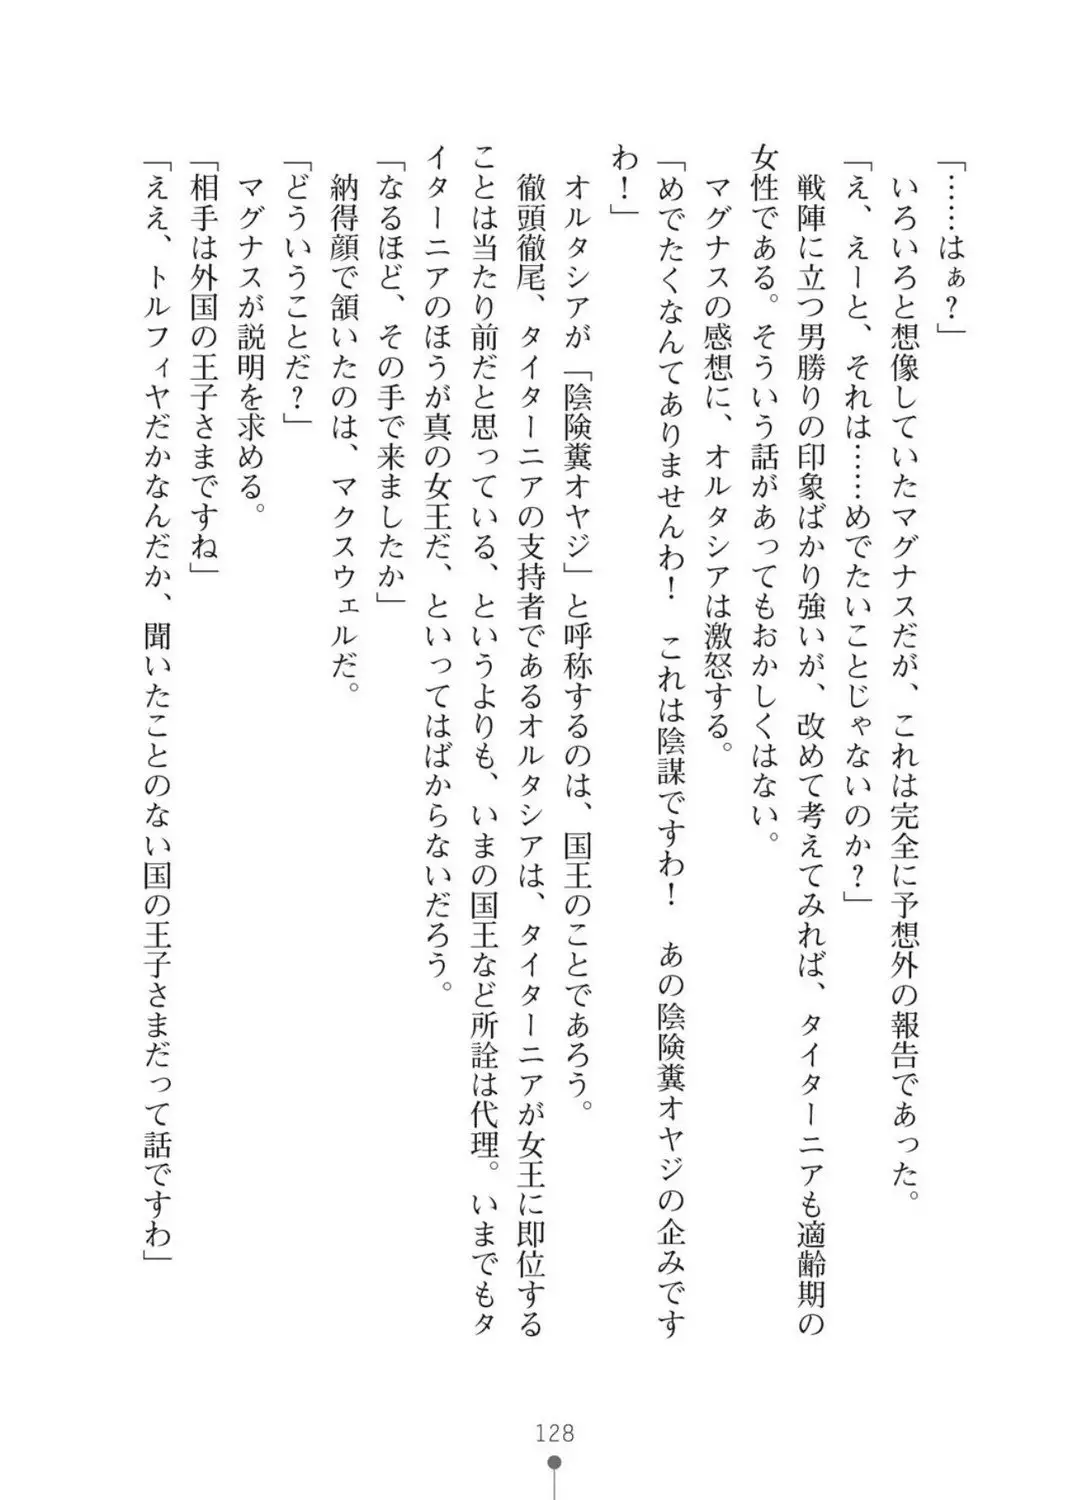 「……はぁ？」
　いろいろと想像していたマグナスだが、これは完全に予想外の報告であった。
「え、えーと、それは……めでたいことじゃないのか？」
　戦陣に立つ男勝りの印象ばかり強いが、改めて考えてみれば、タイターニアも適齢期の
女性である。そういう話があってもおかしくはない。
　マグナスの感想に、オルタシアは激怒する。
「めでたくなんてありませんわ！　これは陰謀ですわ！　あの陰険糞オヤジの企みです
わ！」
　オルタシアが「陰険糞オヤジ」と呼称するのは、国王のことであろう。
　徹頭徹尾、タイターニアの支持者であるオルタシアは、タイターニアが女王に即位する
ことは当たり前だと思っている、というよりも、いまの国王など所詮は代理。いまでもタ
イターニアのほうが真の女王だ、といってはばからないだろう。
「なるほど、その手で来ましたか」
　納得顔で頷いたのは、マクスウェルだ。
「どういうことだ？」
　マグナスが説明を求める。
「相手は外国の王子さまですね」
「ええ、トルフィヤだかなんだか、聞いたことのない国の王子さまだって話ですわ」
128